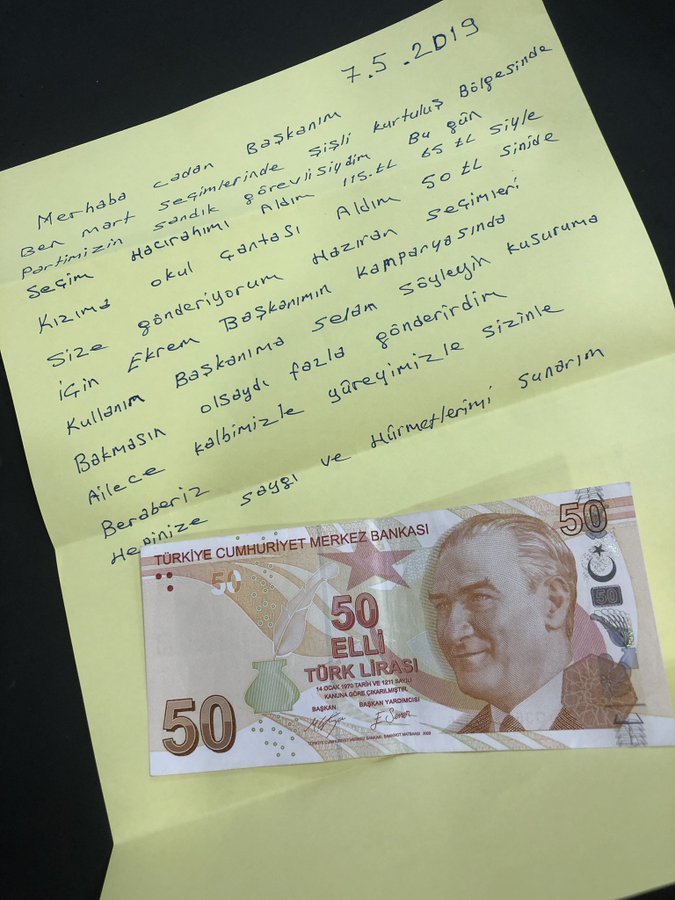 7.5.2019
Merhaba cadan Başkanım
Ben mart seçimlerinde Şişli kurtuluş Bölgesinde
Partimizin sandık görevlisiydim Bu gün
Seçim Hacırahımı Aldım 115.tL 65 tL siyle
Kızıma okul çantası Aldım 50 tL sinide
Size gönderiyorum Haziran seçimleri
için Ekrem Başkanımın kampanyasında
Kullanım Başkanıma selam söyleyin kusuruma
Bakmasın olsaydı fazla gönderirdim
Ailece kalbimizle yüreyimizle sizinle
Beraberiz
Hepinize saygı ve Hürmetlerimi sunarım
TÜRKİYE CUMHURİYET MERKEZ BANKASI
50
50
50
50
ELLİ
TÜRK LİRASI
14 OCAK 1970 TARİH VE 1211 SAYILI
KANUNA GÖRE ÇIKARILMIŞTIR.
BAŞKAN BAŞKAN YARDIMCISI
50
TÜRKİYE CUMHURİYET MERKEZ BANKASI BANKNOT MATBAASI 2009